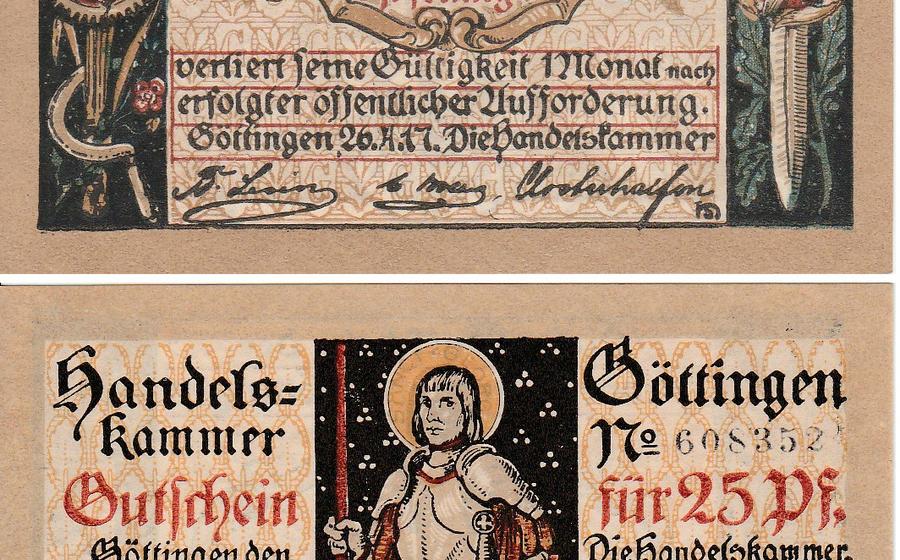 verliert seine Gültigkeit 1 Monat nach
erfolgter öffentlicher Aufforderung.
Göttingen, 26.4.17. Die Handelskammer
Handels=
kammer
Gutschein
Göttingen den
Göttingen
No 608352
für 25 Pf.
Die Handelskammer